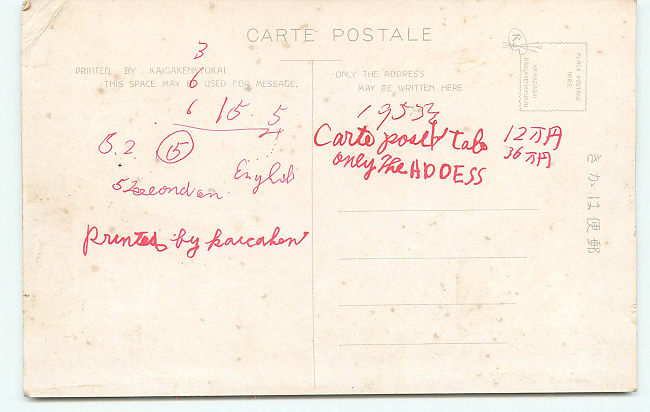 CARTE POSTALE
PRINTED BY KAIGAKENKYUKAI
THIS SPACE MAY BE USED FOR MESSAGE.
ONLY THE ADDRESS
MAY BE WRITTEN HERE
K
PLACE POSTAGE
HERE
KAIGAKENKYUKAI
きかは便郵
3
6
6 15. 5
8.2 ⑮
English
Printed by kaicaken
Carte post
only The ADDESS
12万円
36万円